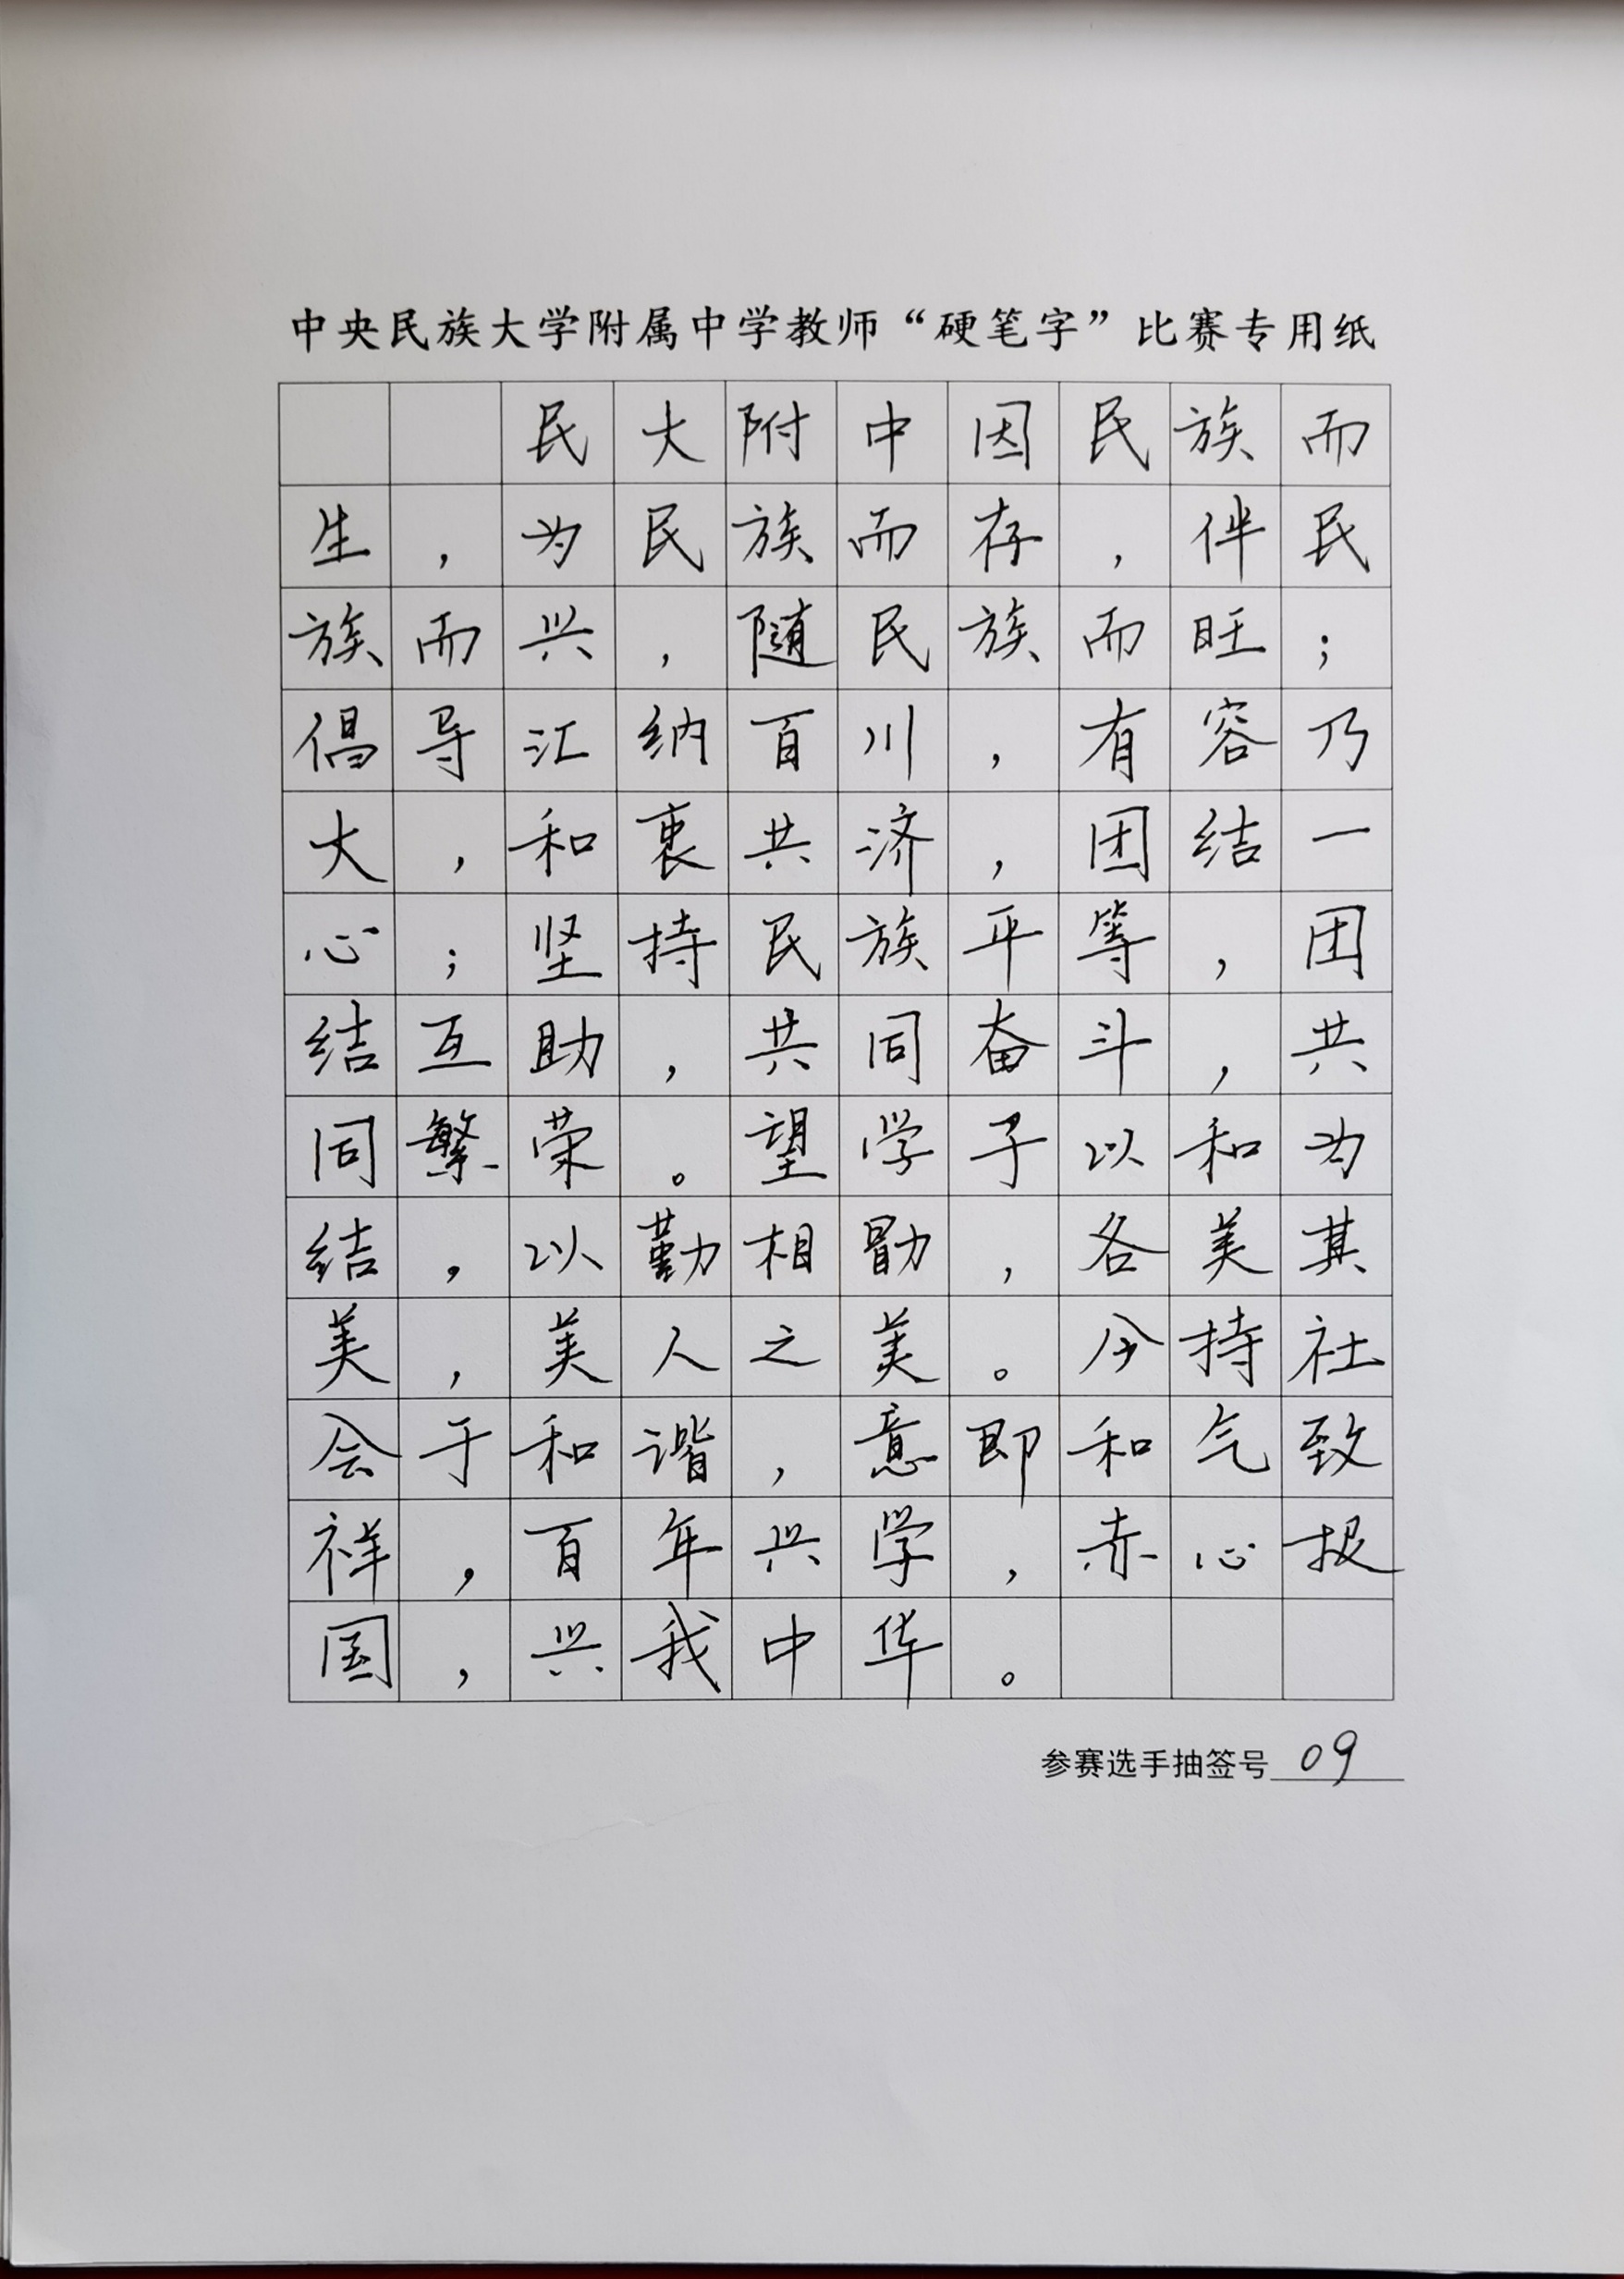 中央民族大学附属中学教师“硬笔字”比赛专用纸
民大附中因民族而
生，为民族而存，伴民
族而兴，随民族而旺；
倡导汇纳百川，有容乃
大，和衷共济，团结一
心；坚持民族平等，团
结互助，共同奋斗，共
同繁荣。望学子以和为
结，以勤相勖，各美其
美，美人之美。今持社
会于和谐，意即和气致
祥，百年兴学，赤心报
国，兴我中华。
参赛选手抽签号 09